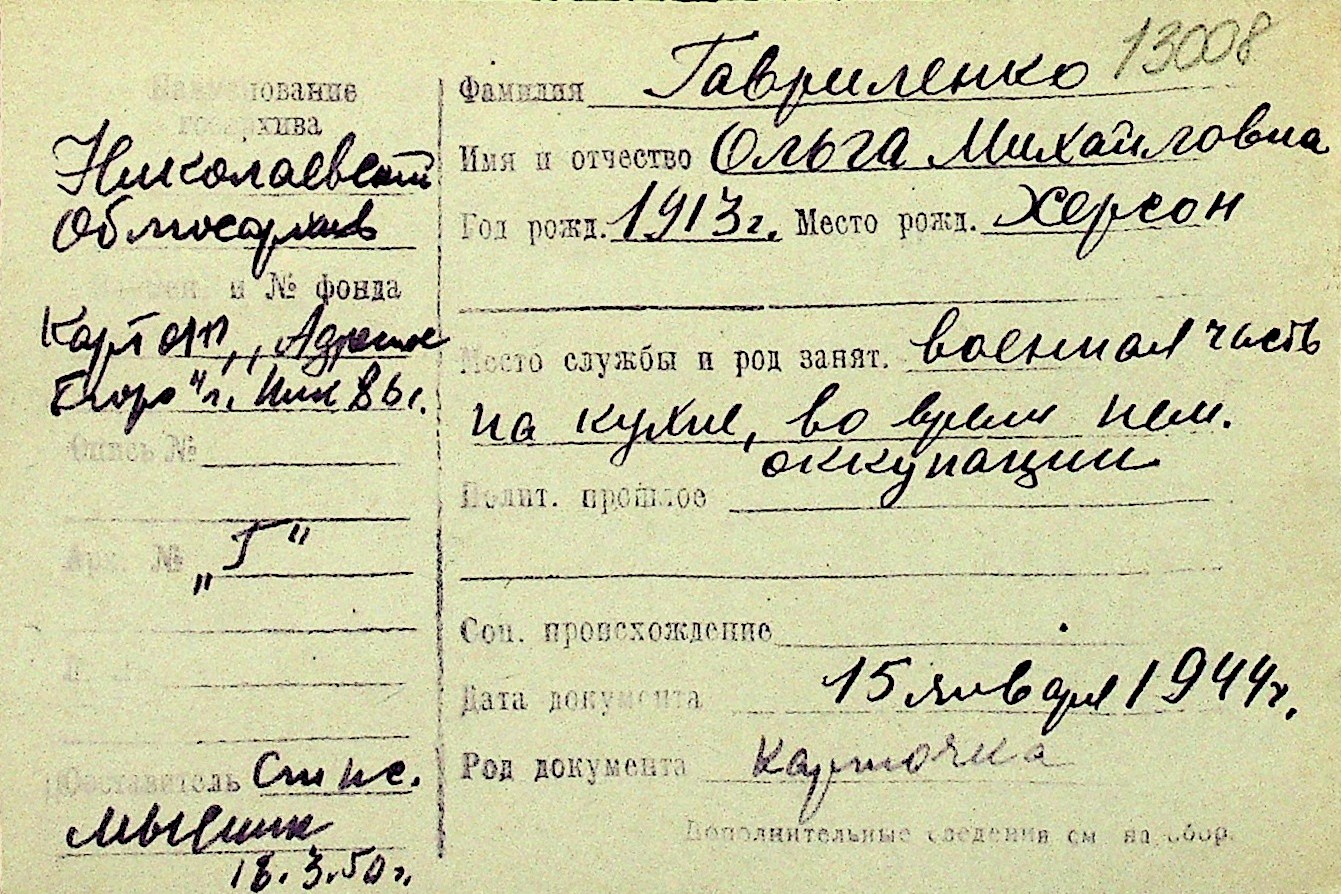 13008
Наименование
госархива
Николаевский
Облгосархив
и № фонда
Карт
Бюро" г. Ник
Опись №
Арх. №
„Г"
Составитель
18.3.50 г.
Фамилия Гавриленко
Имя и отчество Ольга Михайловна
Год рожд. 1913 г. Место рожд. Херсон
Место службы и род занят. военная часть
на кухне, во время нем.
оккупации
Полит. прошлое
Соц. происхождение
Дата документа 15 января 1944 г.
Род документа карточка
Дополнительные сведения см на обор.